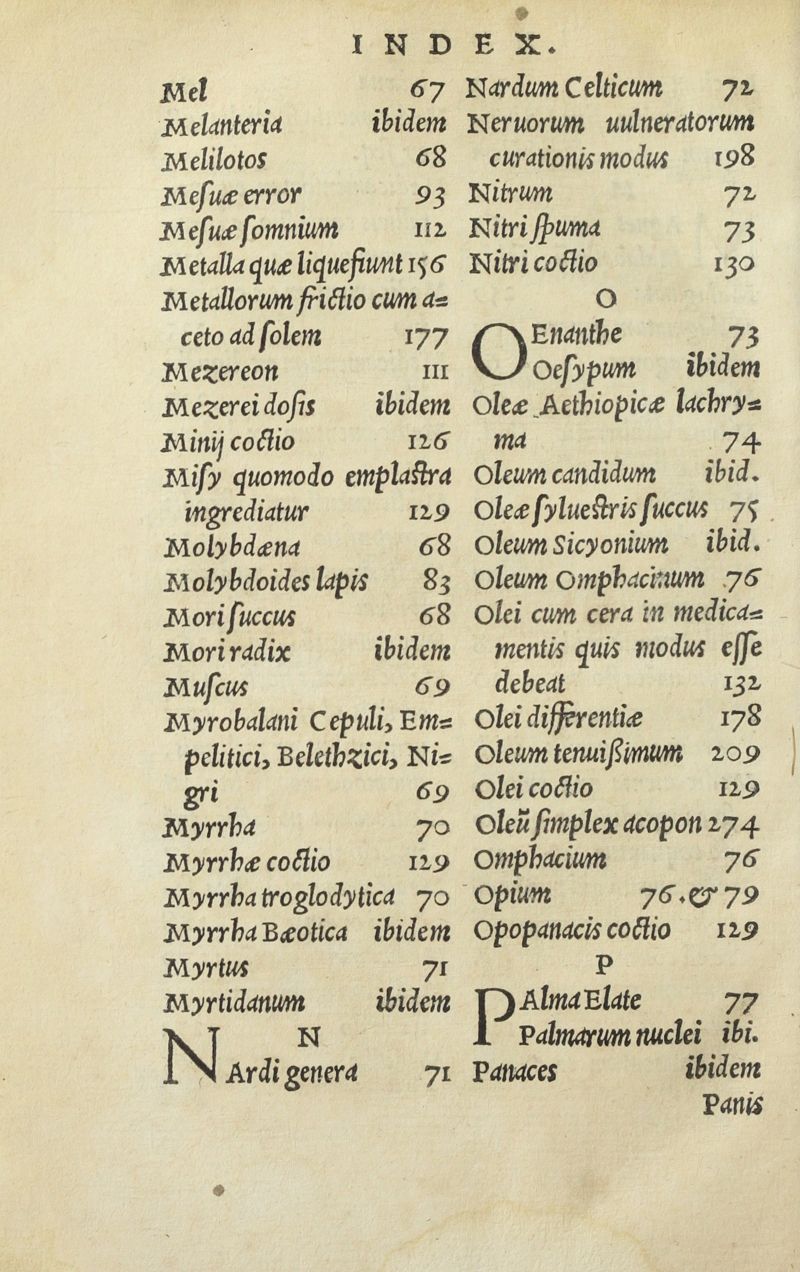 INDEX.
Mel 67
Melanteria ibidem
Melilotos 68
Meſuæ error 93
Meſuæ ſomnium 112
Metalla quæ liquefiunt 156
Metallorum frictio cum a=
ceto ad ſolem 177
Mezereon 111
Mezerei doſis ibidem
Minij coctio 126
Miſy quomodo emplaſtra
ingrediatur 129
Molybdæna 68
Molybdoides lapis 83
Mori ſuccus 68
Mori radix ibidem
Muſcus 69
Myrobalani Cepuli, Em=
pelitici, Belethzici, Ni=
gri 69
Myrrha 70
Myrrhæ coctio 129
Myrrha troglodytica 70
Myrrha Bæotica ibidem
Myrtus 71
Myrtidanum ibidem
N
NArdi genera 71
Nardum Celticum 72
Neruorum uulneratorum
curationis modus 198
Nitrum 72
Nitri ſpuma 73
Nitri coctio 130
O
OEnanthe 73
Oeſypum ibidem
Oleæ Aethiopicæ lachry=
ma 74
Oleum candidum ibid.
Oleæ ſylueſtris ſuccus 75
Oleum Sicyonium ibid.
Oleum Omphacinum 76
Olei cum cera in medica=
mentis quis modus eſſe
debeat 132
Olei differentiæ 178
Oleum tenuißimum 209
Olei coctio 129
Oleũ ſimplex acopon 274
Omphacium 76
Opium 76.& 79
Opopanacis coctio 129
P
PAlma Elate 77
Palmarum nuclei ibi.
Panaces ibidem
Panis